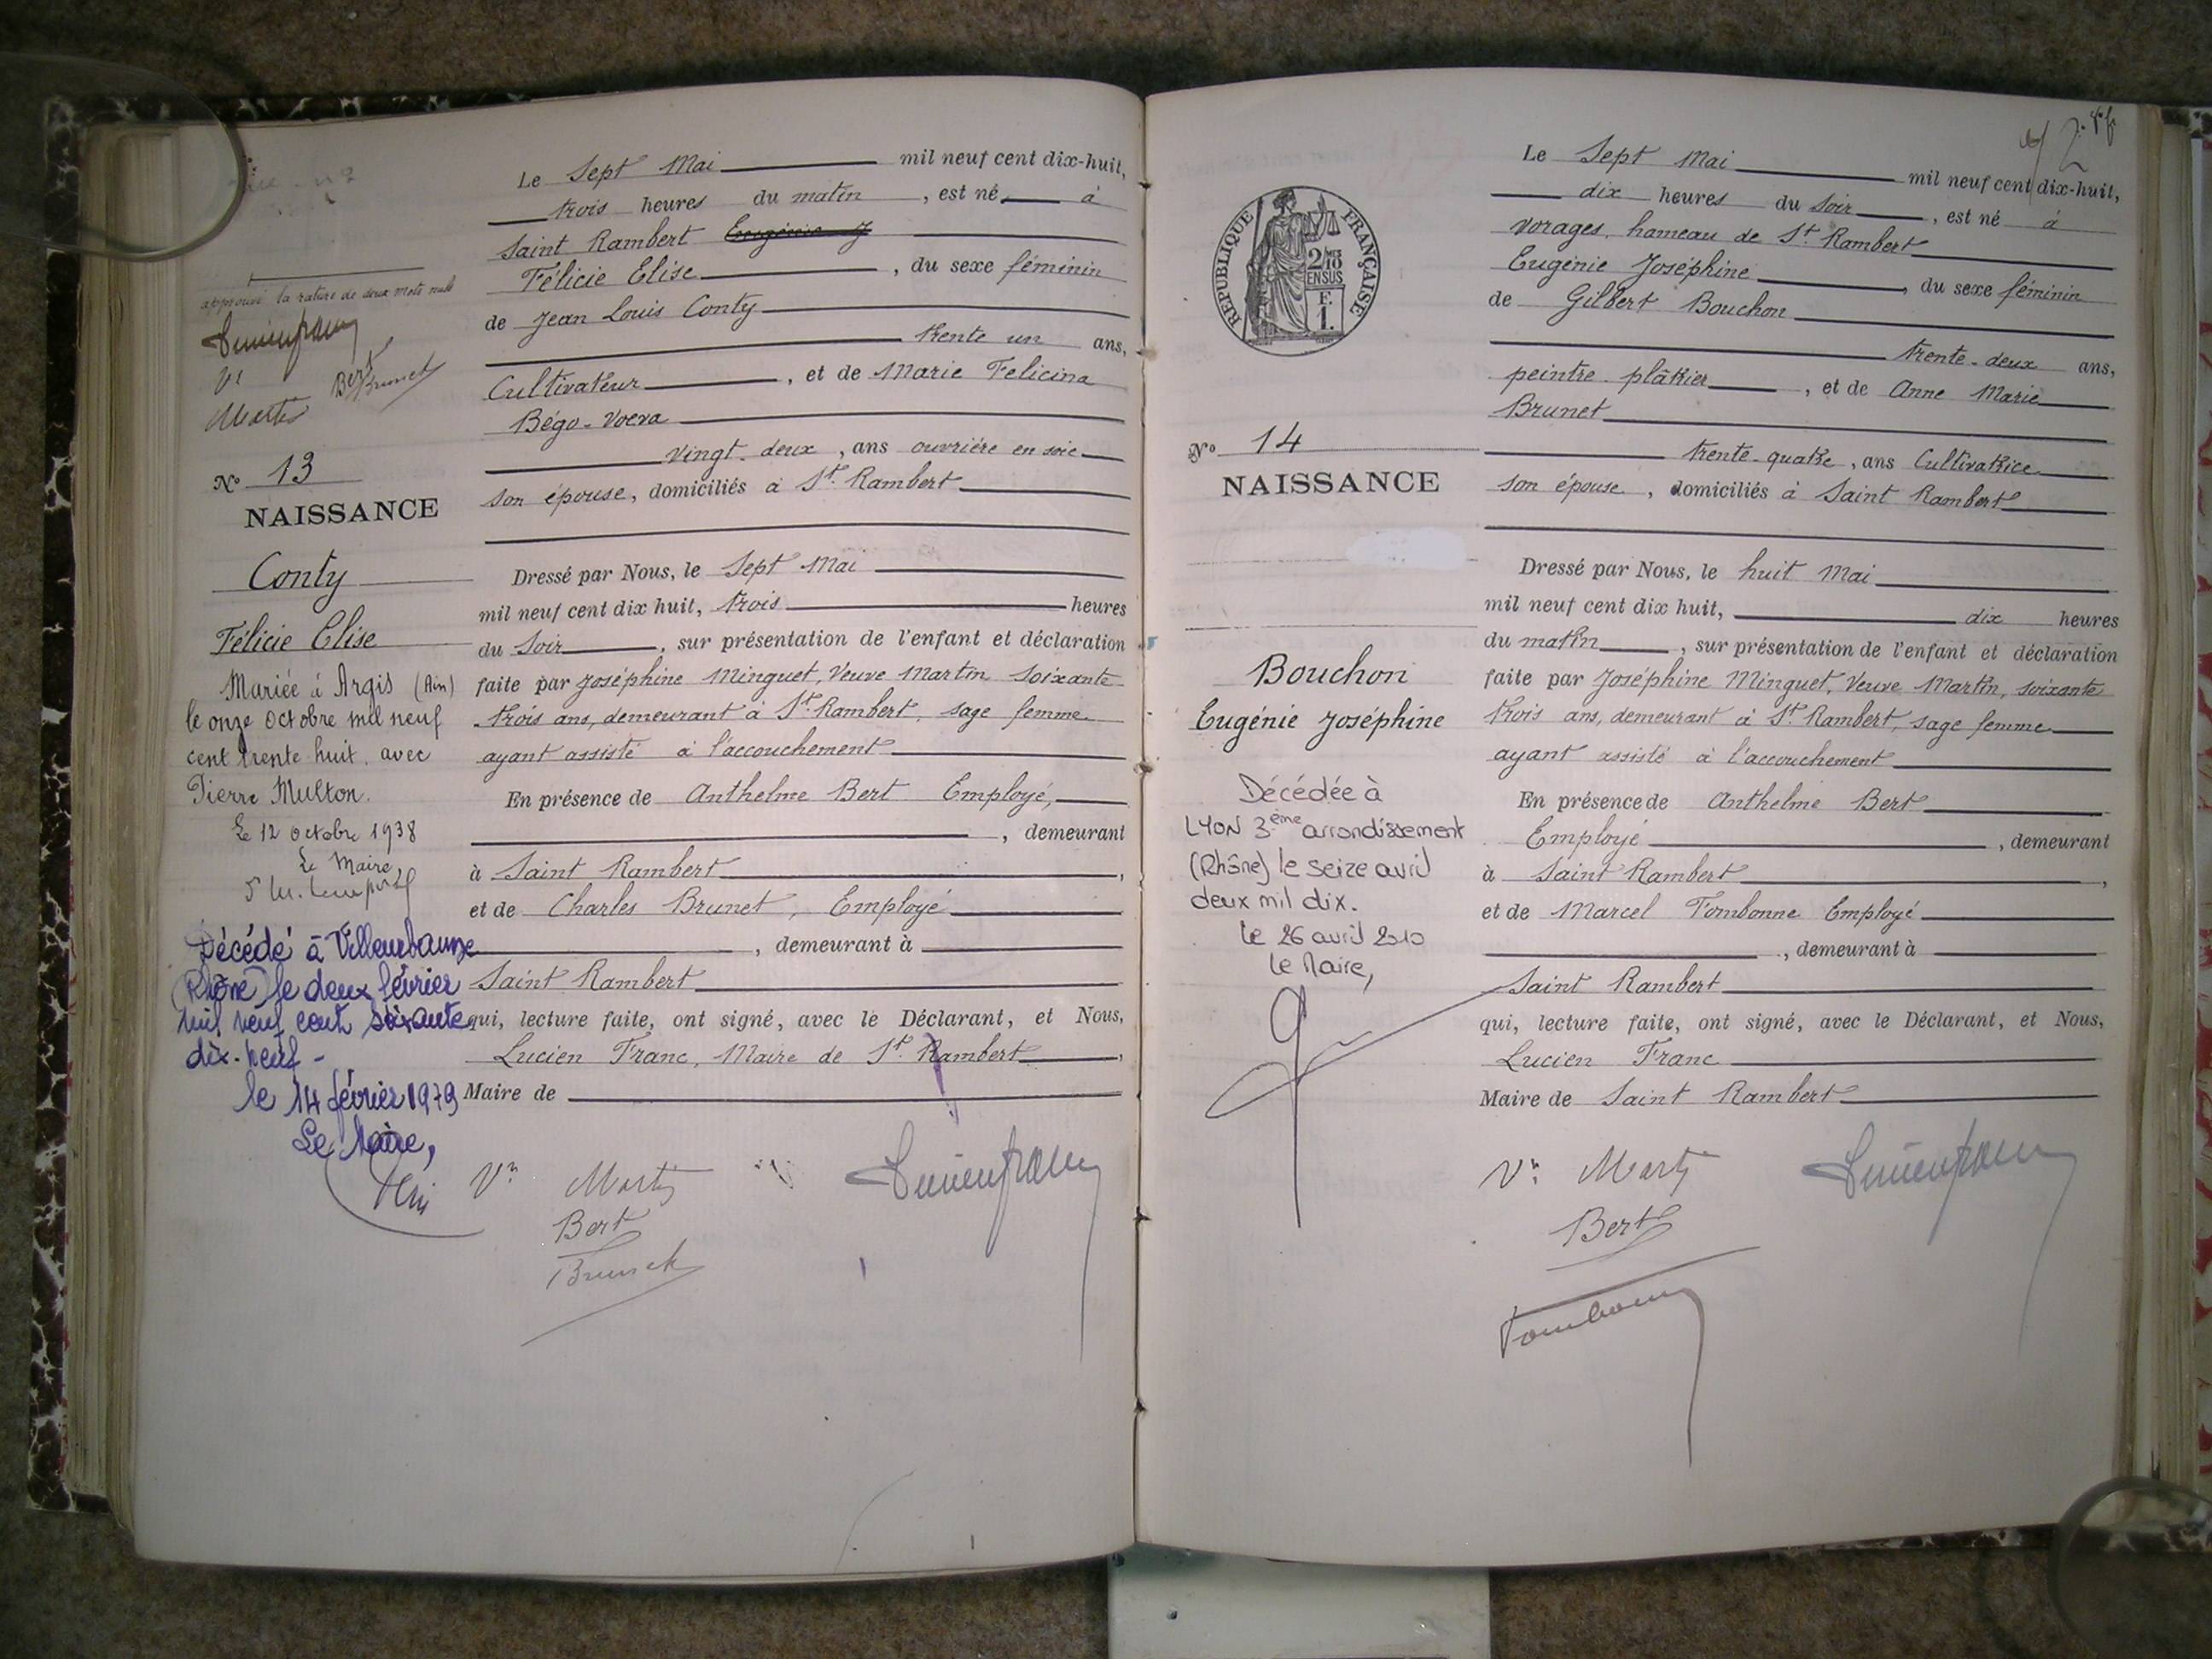 approuvé la rature de deux mots nuls
Vᵉ Bert
Brunet
Martin
N° 13
NAISSANCE
Conty
Félicie Elise
Mariée à Argis (Ain)
le onze octobre mil neuf
cent trente huit avec
Pierre Multon.
Le 12 octobre 1938
Le Maire,
Décédé à Villeurbanne
(Rhône) le deux février
mil neuf cent soixante
dix-neuf -
le 14 février 1979
Le Maire,
Le Sept Mai mil neuf cent dix-huit,
trois heures du matin, est né à
Saint Rambert
Félicie Elise, du sexe féminin
de Jean Louis Conty
trente un ans,
Cultivateur, et de Marie Felicina
Bégo-Voeva
vingt-deux, ans ouvrière en soie
son épouse, domiciliés à St. Rambert
Dressé par Nous, le Sept Mai
mil neuf cent dix huit, trois heures
du soir, sur présentation de l'enfant et déclaration
faite par Joséphine Minguet, Veuve Martin soixante
trois ans, demeurant à St. Rambert, sage femme
ayant assisté à l'accouchement
En présence de Anthelme Bert Employé,
, demeurant
à Saint Rambert,
et de Charles Brunet, Employé
, demeurant à
Saint Rambert
qui, lecture faite, ont signé, avec le Déclarant, et Nous,
Lucien Franc, Maire de St. Rambert,
Maire de
Vᵉ Martin
Bert
Brunet
RÉPUBLIQUE FRANÇAISE
2/10 EN SUS
F.
1.
N° 14
NAISSANCE
Bouchon
Eugénie Joséphine
Décédée à
LYON 3ème arrondissement
(Rhône) le seize avril
deux mil dix.
le 26 avril 2010
le Maire,
Le Sept Mai mil neuf cent dix-huit,
dix heures du soir, est né à
Vorages, hameau de St. Rambert
Eugénie Joséphine, du sexe féminin
de Gilbert Bouchon
trente-deux ans,
peintre-plâtrier, et de Anne Marie
Brunet
trente-quatre, ans Cultivatrice
son épouse, domiciliés à Saint Rambert
Dressé par Nous, le huit Mai
mil neuf cent dix huit, dix heures
du matin, sur présentation de l'enfant et déclaration
faite par Joséphine Minguet, Veuve Martin, soixante
trois ans, demeurant à St. Rambert, sage femme
ayant assisté à l'accouchement
En présence de Anthelme Bert
Employé, demeurant
à Saint Rambert,
et de Marcel Tombonne Employé
, demeurant à
Saint Rambert
qui, lecture faite, ont signé, avec le Déclarant, et Nous,
Lucien Franc
Maire de Saint Rambert
Vᵉ Martin
Bert